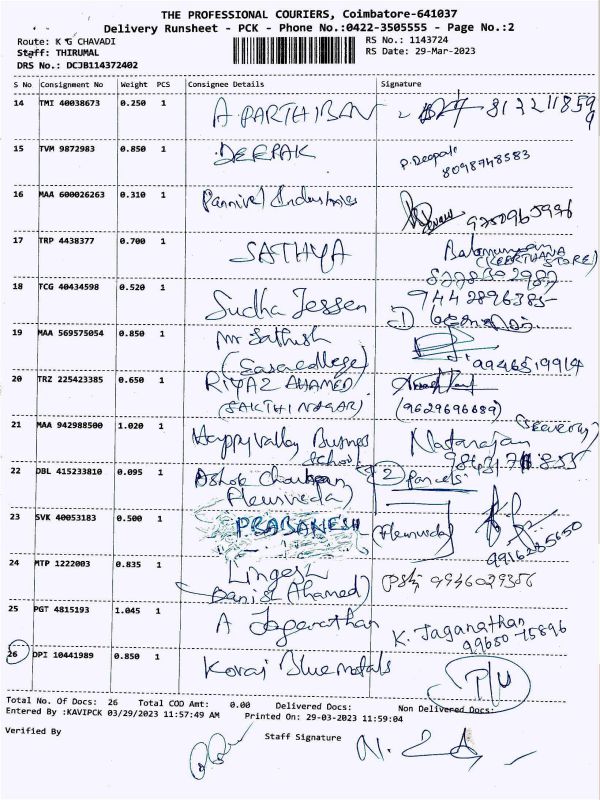 THE PROFESSIONAL COURIERS, Coimbatore-641037
Delivery Runsheet - PCK - Phone No.:0422-3505555 - Page No.:2
Route: K G CHAVADI
RS No.: 1143724
Staff: THIRUMAL
RS Date: 29-Mar-2023
DRS No.: DCJB114372402
S No Consignment No Weight PCS Consignee Details Signature
14 TMI 40038673 0.250 1 A. PARTHIBAN
15 TVM 9872983 0.850 1 DEEPAK P. Deepak
8098748583
16 MAA 600026263 0.310 1 Pannivel Industries 9750965996
17 TRP 4438377 0.700 1 SATHYA
(KEERTHANA STORE)
18 TCG 40434598 0.520 1 Sudha Jessen 9442896385
19 MAA 569575054 0.850 1 Mr Sathish
20 TRZ 225423385 0.650 1 RIYAZ AHAMED
(SAKTHI NAGAR) (9629696689)
21 MAA 942988500 1.020 1 Happy Valley Business School Natarajan
22 DBL 415233810 0.095 1 Ashok 2 Parcels
23 SVK 40053183 0.500 1 PRABANESH 9916285650
24 MTP 1222003 0.835 1 Lingesh
Ahamed)
25 PGT 4815193 1.045 1 A Jaganathan K. Jaganathan
99650 75896
26 DPI 10441989 0.850 1 Kovai Bluemetals P/U
Total No. Of Docs: 26 Total COD Amt: 0.00 Delivered Docs: Non Delivered Docs:
Entered By :KAVIPCK 03/29/2023 11:57:49 AM Printed On: 29-03-2023 11:59:04
Verified By Staff Signature